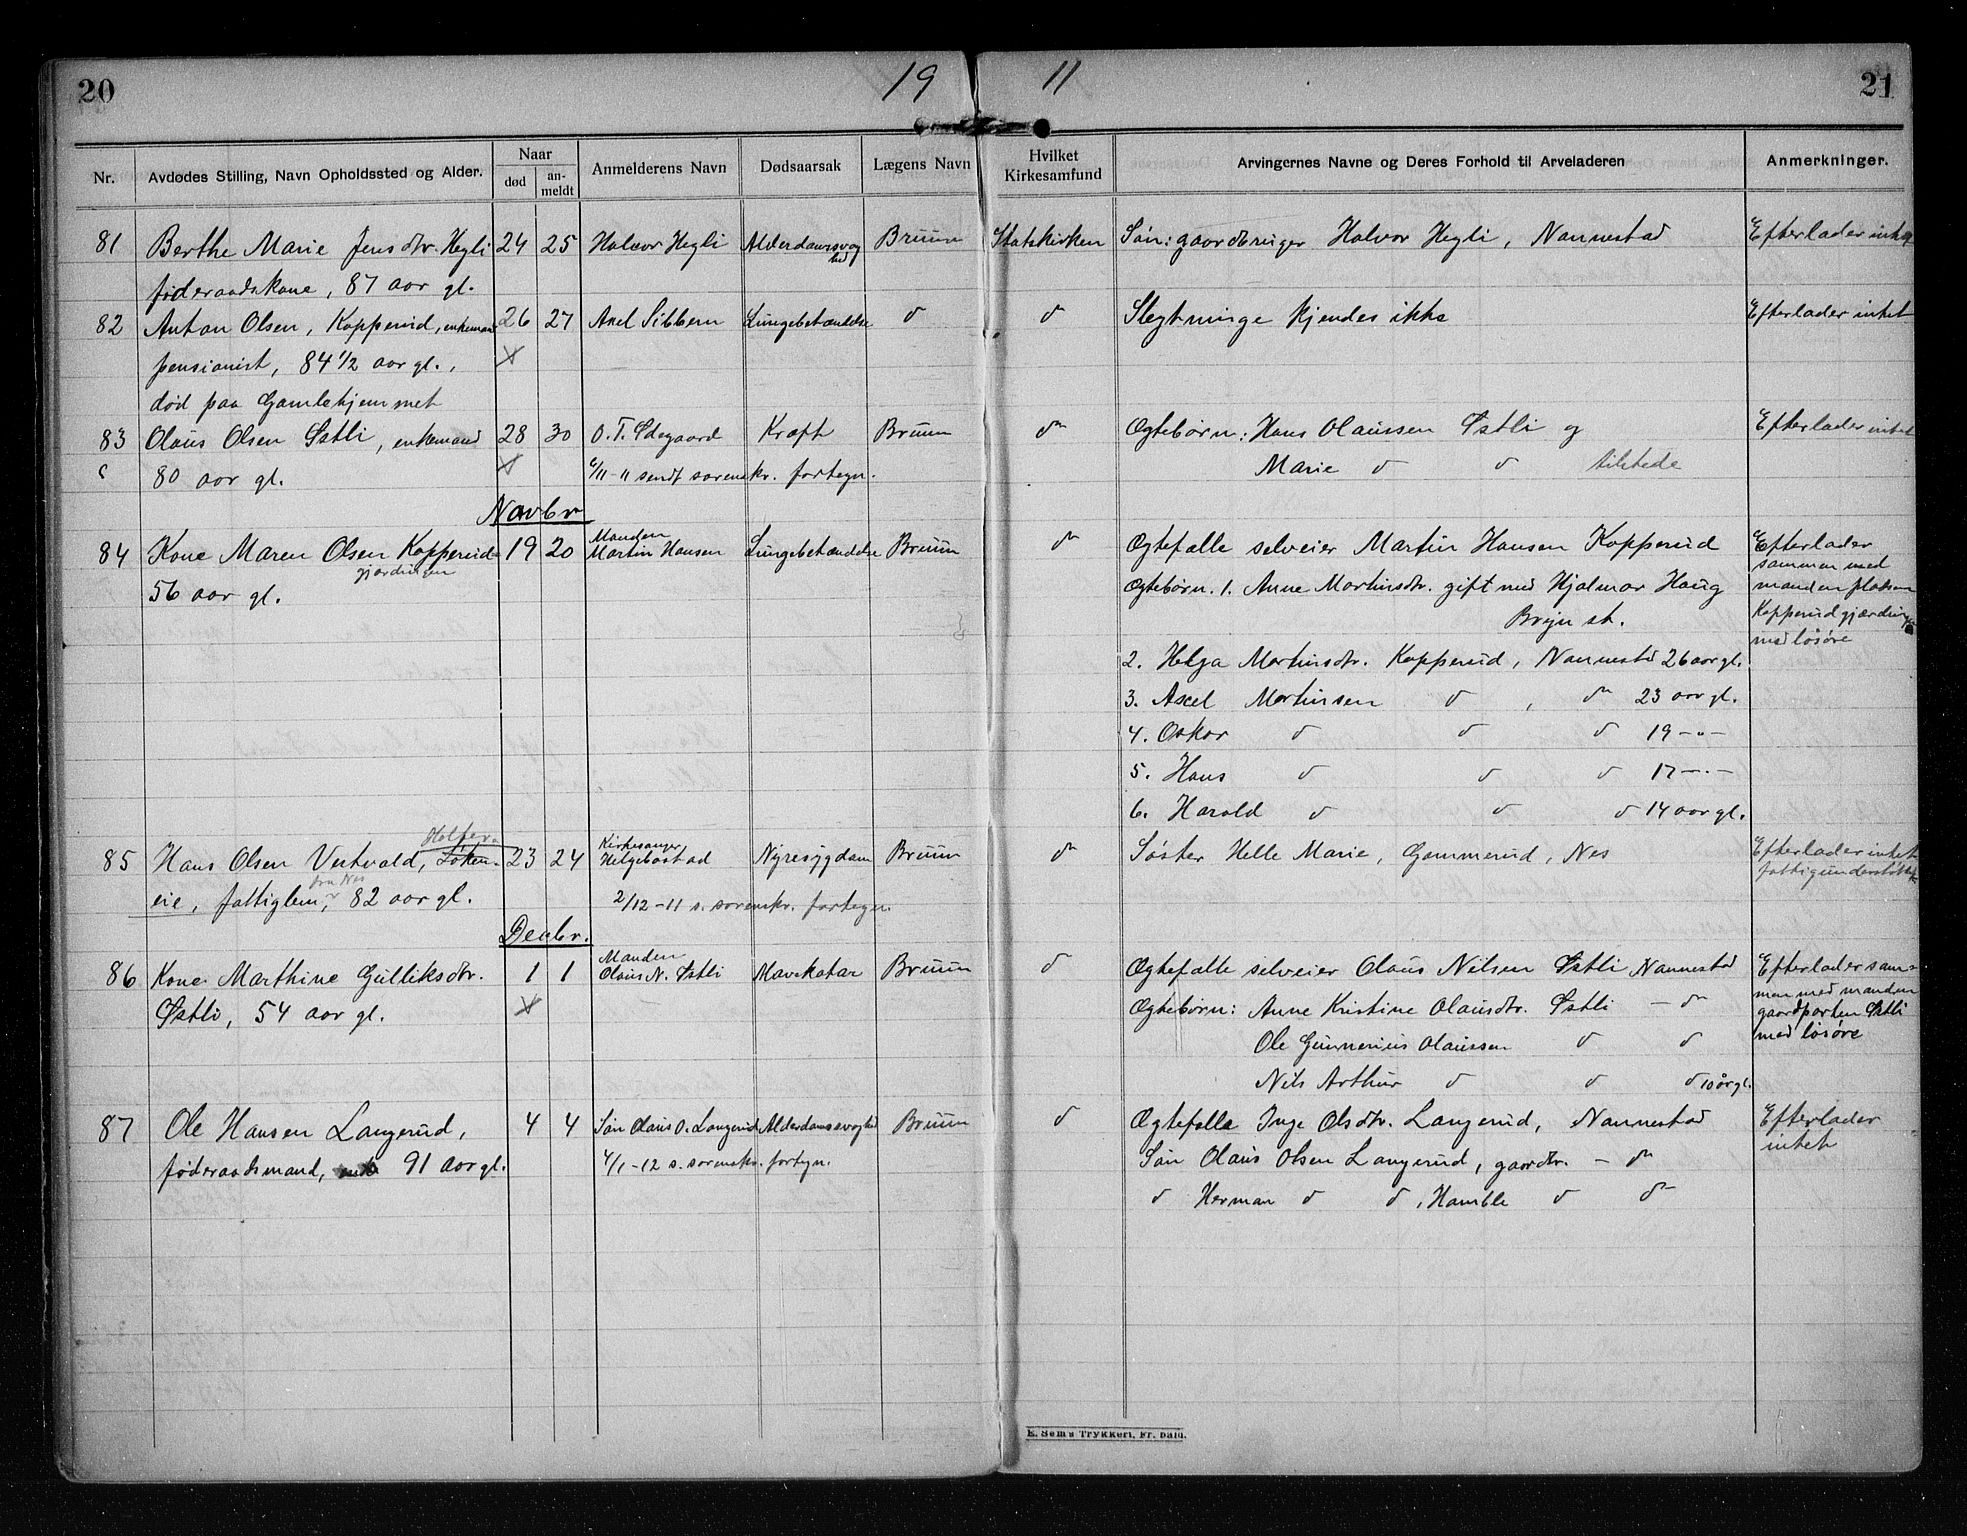 20
19 11
21
Nr. Avdødes Stilling, Navn Opholdssted og Alder. Naar død an-meldt Anmelderens Navn Dødsaarsak Lægens Navn Hvilket Kirkesamfund Arvingernes Navne og Deres Forhold til Arveladeren Anmerkninger.
81 Berthe Marie Jensdtr. Hegli 24 25 Halvor Hegli Alderdomssvag Bruun Statskirken Søn: gaardbruger Halvor Hegli, Nannestad Efterlader intet
hed
føderaadskone, 87 aar gl.
82 Anton Olsen, Kopperud, enkemand 26 27 Axel Sibbern Lungebetændelse d d Slegtninge kjendes ikke Efterlader intet
pensionist, 84 1/2 aar gl.,
død paa Gamlehjemmet
83 Olaus Olsen Østli, enkemand 28 30 O. T. Ødegaard Kræft Bruun do Ægtebørn: Hans Olaussen Østli og Efterlader intet
80 aar gl. 6/11-11 sendt sorenskr. fortegn. Marie d d tilstede
Novbr
84 Kone Maren Olsen Kopperud- 19 20 Manden Martin Hansen Lungebetændelse Bruun do Ægtefælle selveier Martin Hansen Kopperud Efterlader
gjærdingen sammen med
56 aar gl. Ægtebørn. 1. Anne Martinsdtr. gift med Hjalmar Haug manden pladsen
Bryn st. Kopperudgjærdingen
med løsøre
2. Helga Martinsdtr. Kopperud, Nannestad 26 aar gl.
3. Axel Martinsen d , do 23 aar gl.
4. Oskar d d d 19 -"-
5. Hans d d d 17 -"-
6. Harald d d d 14 aar gl.
85 Hans Olsen Vestvold, Løken- 23 24 Kirkesanger Helgebostad Nyresygdom Bruun do Søster Helle Marie, Gammerud, Nes Efterlader intet
eie, fattiglem, fra Nes 82 aar gl. 2/12-11 s. sorenskr. fortegn. fattigunderstøttet
Decbr.
86 Kone Marthine Gulliksdtr. 1 1 Manden Olaus N. Østli Mavekatar Bruun d Ægtefælle selveier Olaus Nilsen Østli Nannestad Efterlader sam-
men med manden
Østli, 54 aar gl. Ægtebørn: Anne Kristine Olausdtr. Østli - do gaardparten Østli
Ole Gunnerius Olaussen d d med løsøre
Nils Arthur d d d 10 år gl.
87 Ole Hansen Langerud, 4 4 Søn Olaus O. Langerud Alderdomssvaghed Bruun d Ægtefælle Inge Olsdtr. Langerud, Nannestad Efterlader
intet
føderaadsmand, 91 aar gl. 4/1-12 s. sorenskr. fortegn. Søn Olaus Olsen Langerud, gaardbr. - do
d Herman d d, Hamble d do
E. Sem's Trykkeri, Fr.hald.